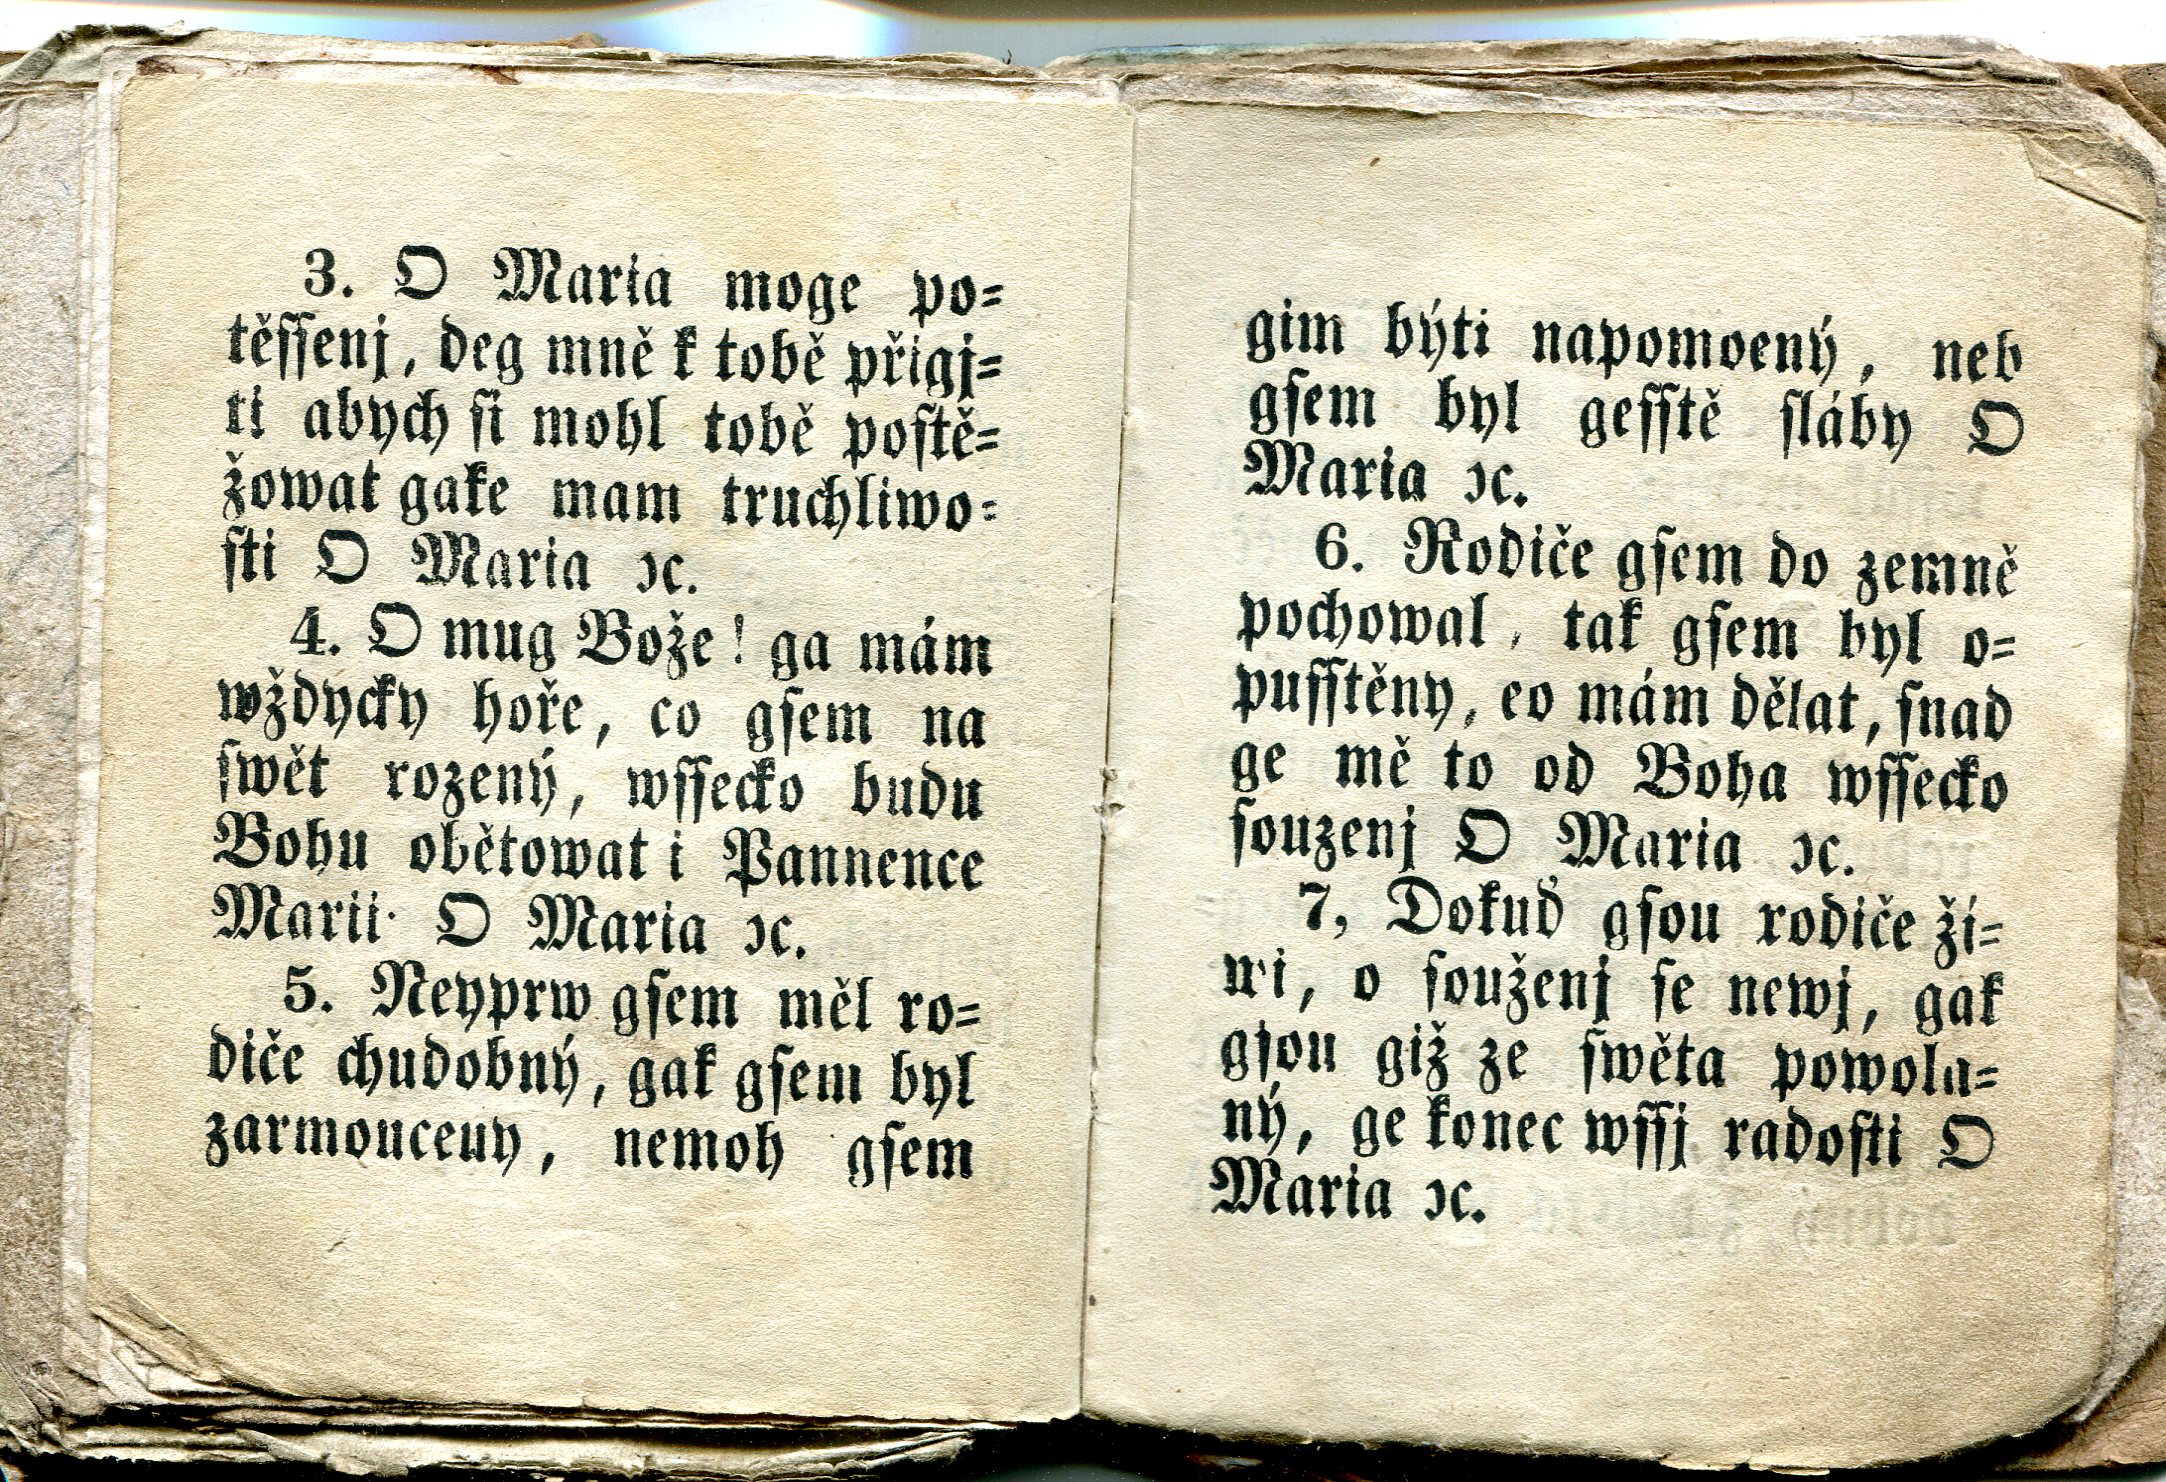 3. O Maria moge po=
těſſenj, deg mně k tobě přigj=
ti abych ſi mohl tobě poſtě=
žowat gake mam truchliwo=
ſti O Maria ꝛc.
4. O mug Bože! ga mám
wždycky hoře, co gſem na
ſwět rozený, wſſecko budu
Bohu obětowat i Pannence
Marii· O Maria ꝛc.
5. Neyprw gſem měl ro=
diče chudobný, gak gſem byl
zarmouceuy, nemoh gſem
gim býti napomoený, neb
gſem byl geſſtě ſláby O
Maria ꝛc.
6. Rodiče gſem do zemně
pochowal, tak gſem byl o=
puſſtěny, eo mám dělat, ſnad
ge mě to od Boha wſſecko
ſouzenj O Maria ꝛc.
7, Dokuď gſou rodiče ží=
wi, o ſouženj ſe newj, gak
gſou giž ze ſwěta powola=
ný, ge konec wſſj radoſti O
Maria ꝛc.